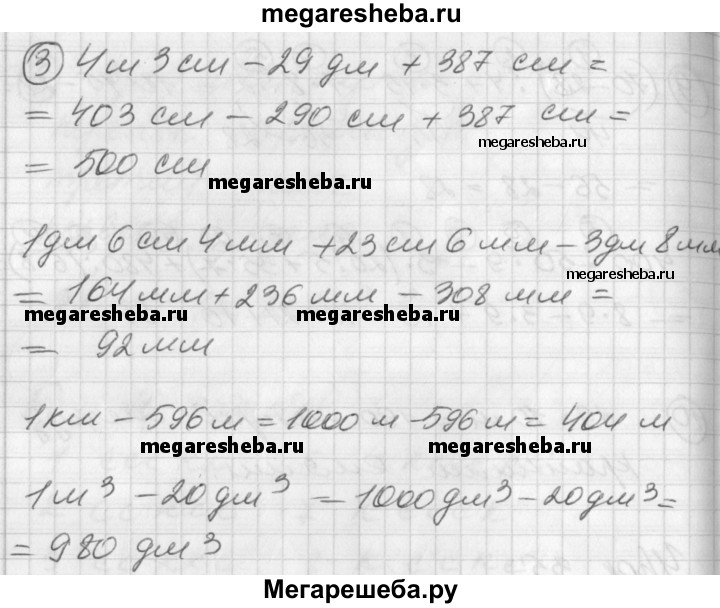 megaresheba.ru
③ 4м 3 см - 29 дм + 387 см =
= 403 см - 290 см + 387 см =
megaresheba.ru
= 500 см
megaresheba.ru
1дм 6 см 4мм + 23 см 6 мм - 3дм 8мм
megaresheba.ru
= 164мм + 236 мм - 308 мм =
megaresheba.ru megaresheba.ru
= 92 мм
1км - 596 м = 1000 м - 596 м = 404 м
megaresheba.ru megaresheba.ru
1м³ - 20 дм³ = 1000дм³ - 20дм³ =
= 980 дм³
Мегарешеба.ру